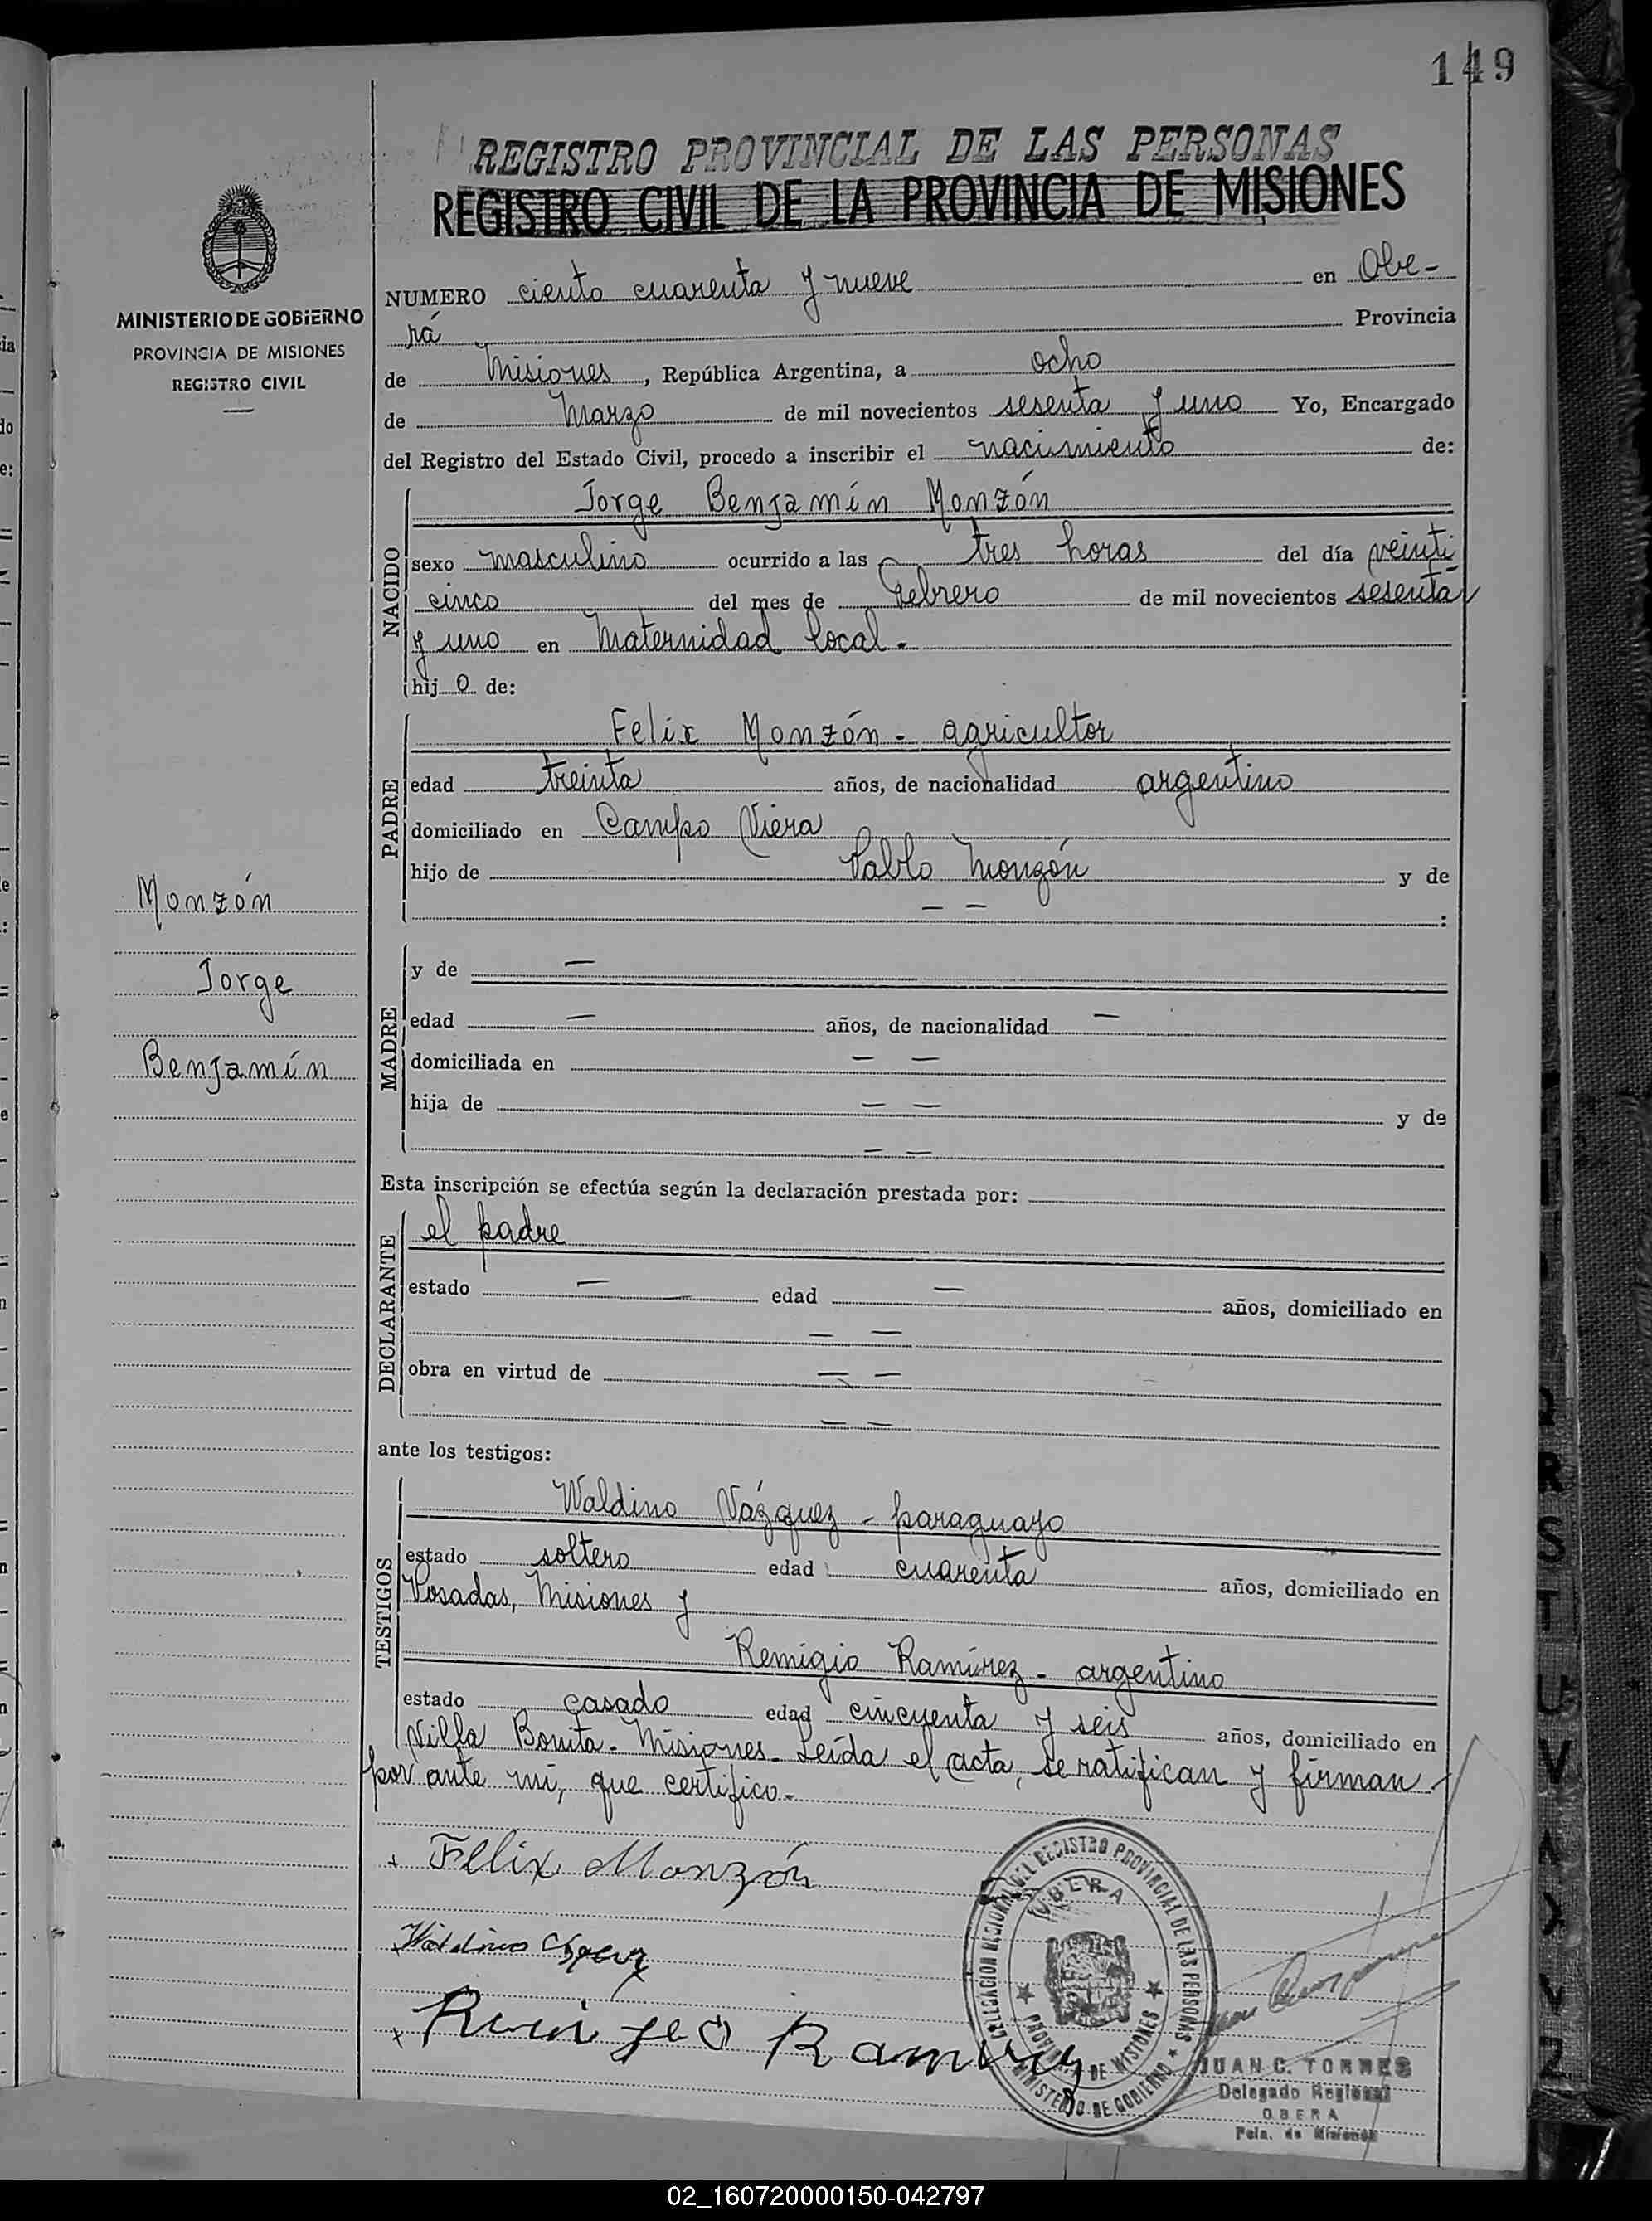 149
REGISTRO PROVINCIAL DE LAS PERSONAS
REGISTRO CIVIL DE LA PROVINCIA DE MISIONES
MINISTERIO DE GOBIERNO
PROVINCIA DE MISIONES
REGISTRO CIVIL
NUMERO ciento cuarenta y nueve en Obe-
rá Provincia
de Misiones, República Argentina, a ocho
de Marzo de mil novecientos sesenta y uno Yo, Encargado
del Registro del Estado Civil, procedo a inscribir el nacimiento de:
NACIDO
Jorge Benjamín Monzón
sexo masculino ocurrido a las tres horas del día veinti
cinco del mes de febrero de mil novecientos sesenta
y uno en Maternidad local.
hijo de:
PADRE
Felix Monzón - agricultor
edad treinta años, de nacionalidad argentino
domiciliado en Campo Viera
hijo de Pablo Monzón y de
— — :
Monzón
Jorge
Benjamín
MADRE
y de —
edad — años, de nacionalidad —
domiciliada en — —
hija de — — y de
— —
Esta inscripción se efectúa según la declaración prestada por:
DECLARANTE
el padre
estado — edad — años, domiciliado en
— —
obra en virtud de — —
— —
ante los testigos:
TESTIGOS
Waldino Vázquez - paraguayo
estado soltero edad cuarenta años, domiciliado en
Posadas, Misiones y
Remigio Ramírez - argentino
estado casado edad cincuenta y seis años, domiciliado en
Villa Bonita - Misiones. Leída el acta, se ratifican y firman
por ante mí, que certifico.
Felix Monzón
Waldino
Ramirez
DELEGACION REGIONAL DEL REGISTRO PROVINCIAL DE LAS PERSONAS
OBERA
PROVINCIA DE MISIONES
MINISTERIO DE GOBIERNO
JUAN C. TORRES
Delegado Regional
OBERA
Pcia. de Misiones
R
S
T
U
V
Z
02_160720000150-042797